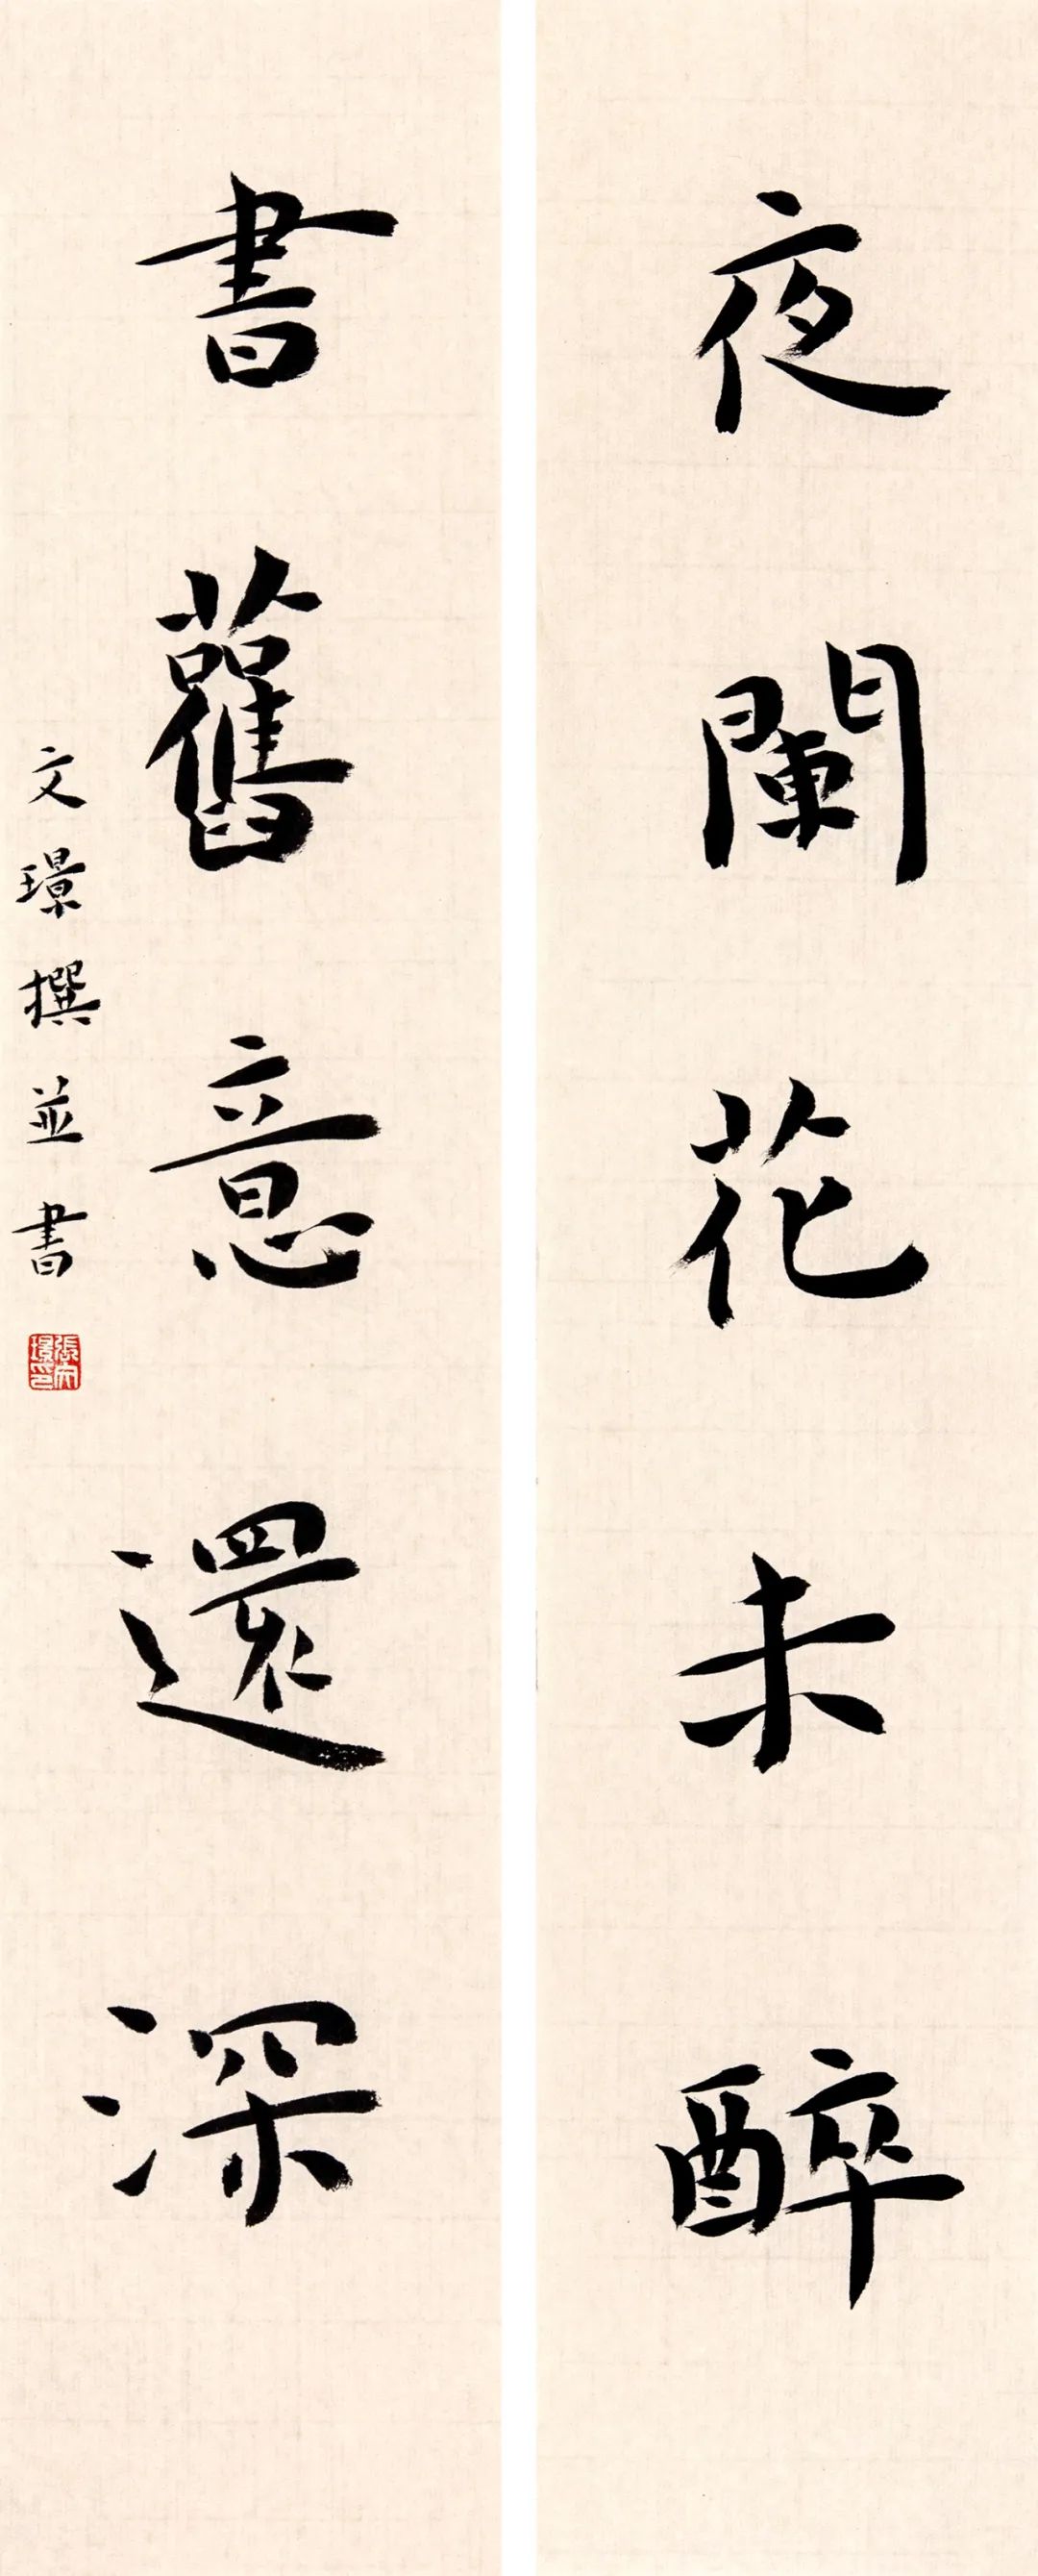 夜闌花未醉
書舊意還深
文璟撰並書
張文璟印